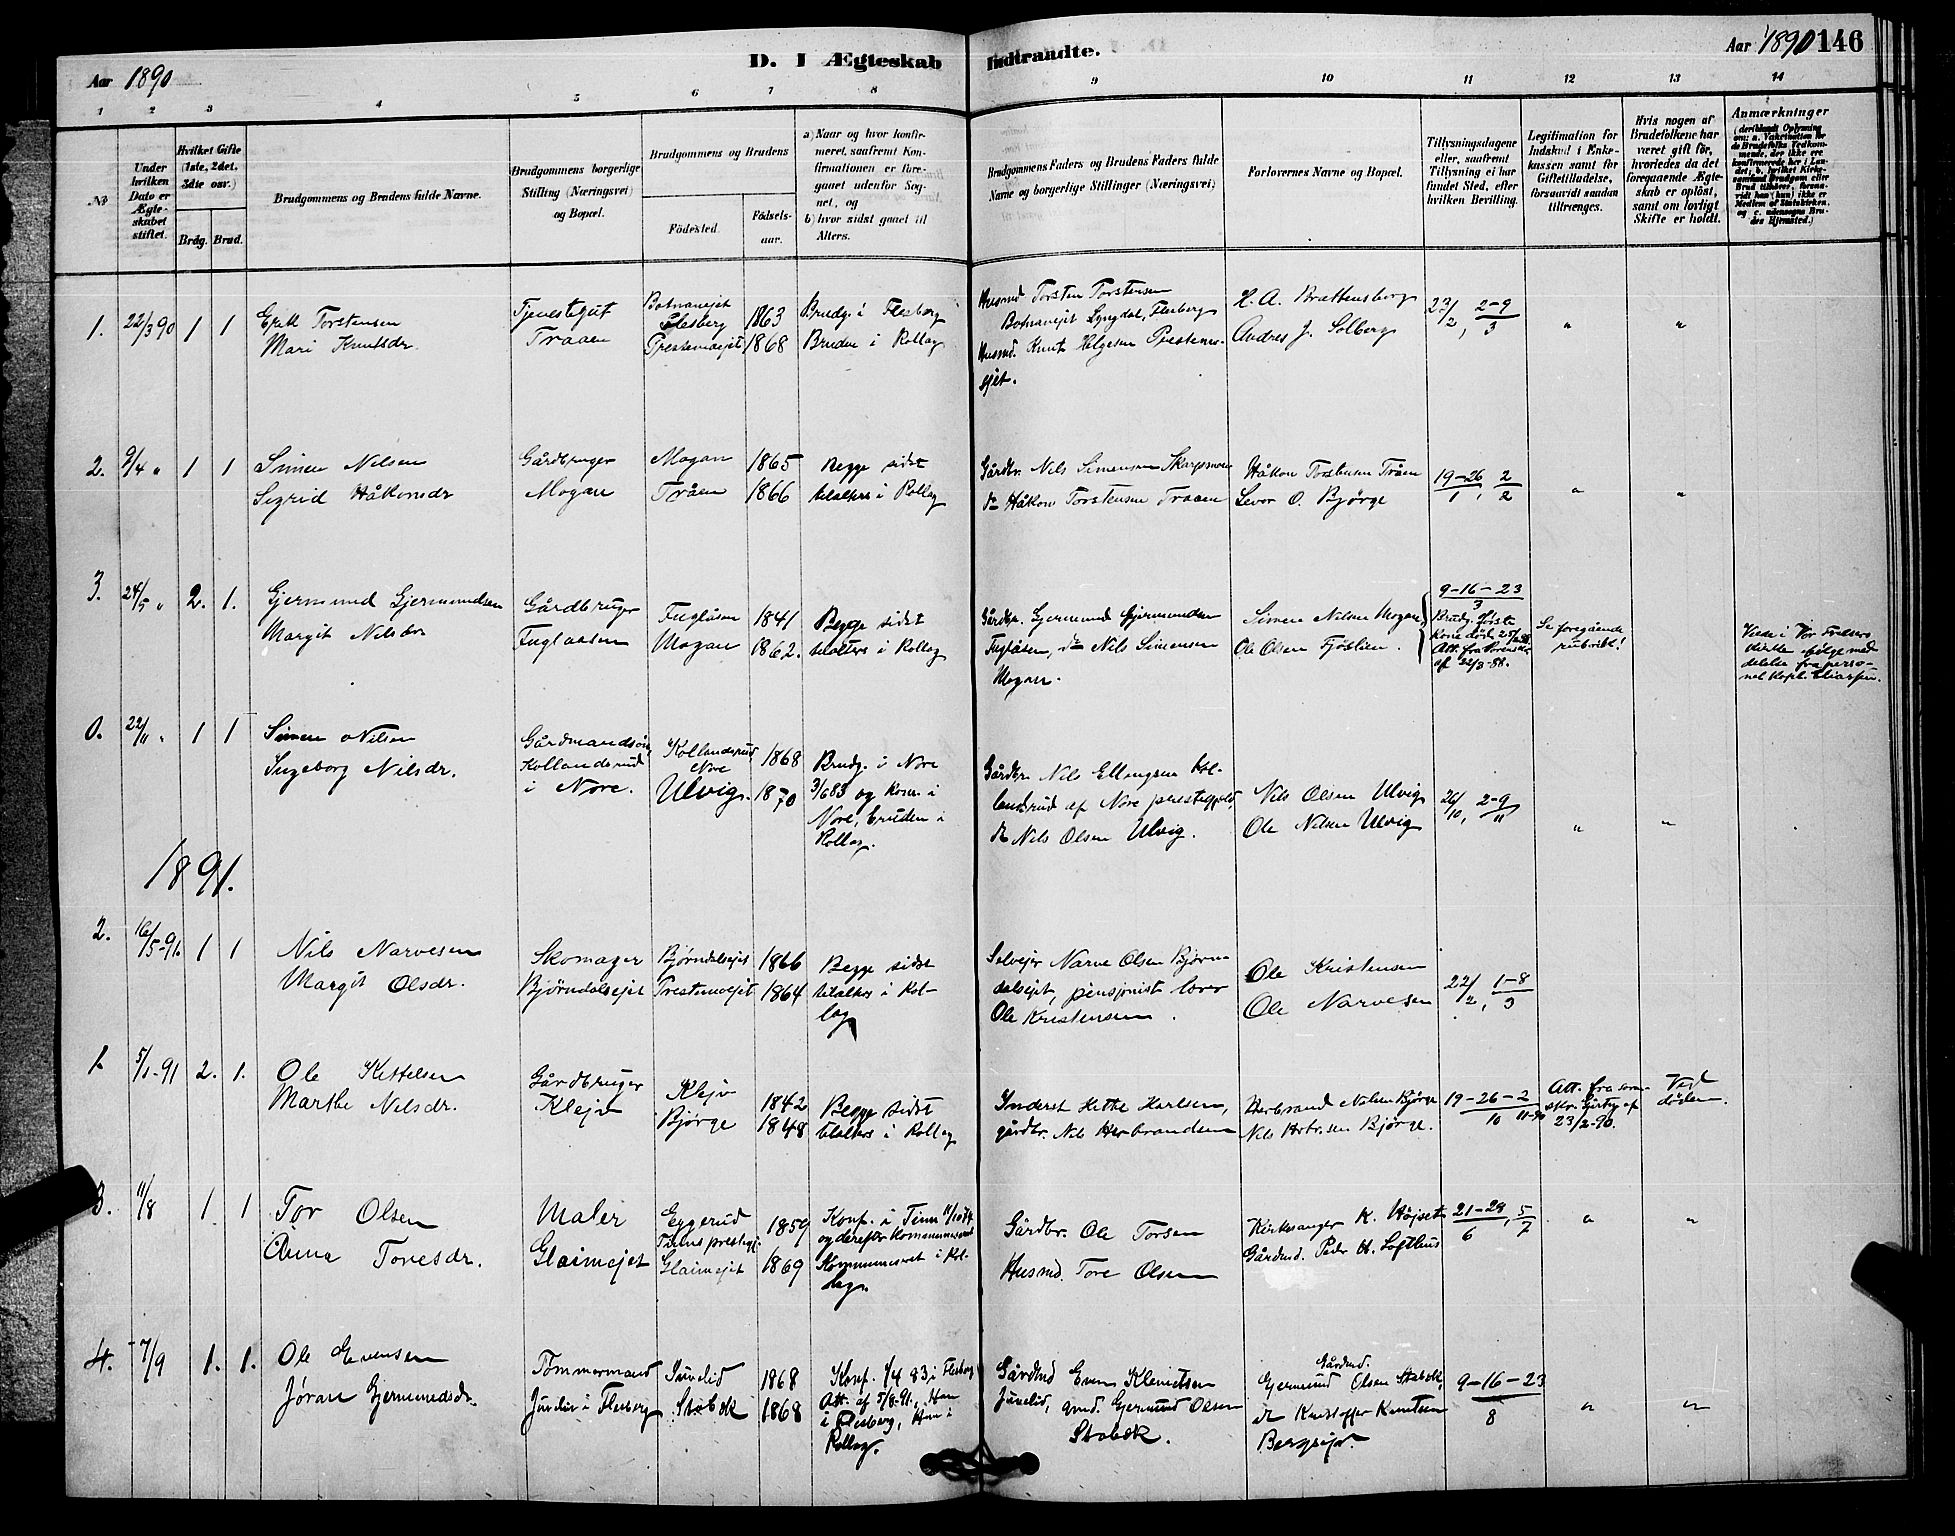 Aar 1890
D. I Ægteskab Indtraadte.
Aar 1890 146
1 2 3 4 5 6 7 8 9 10 11 12 13 14
№
Under hvilken Dato er Ægteskabet stiftet.
Hvilket Gifte (1ste, 2det, 3die osv.)
Brdg. Brud.
Brudgommens og Brudens fulde Navne.
Brudgommens borgerlige Stilling (Næringsvei) og Bopæl.
Brudgommens og Brudens
Födested.
Födsels-aar.
a) Naar og hvor konfirmeret, saafremt Konfirmationen er foregaaet udenfor Sognet, og
b) hvor sidst gaaet til Alters.
Brudgommens Faders og Brudens Faders fulde Navne og borgerlige Stillinger (Næringsvei)
Forlovernes Navne og Bopæl.
Tillysningsdagene eller, saafremt Tillysning ei har fundet Sted, efter hvilken Bevilling.
Legitimation for Indskud i Enkekassen samt for Giftetilladelse, forsaavidt saadan tiltrænges.
Hvis nogen af Brudefolkene har været gift för, hvorledes da det foregaaende Ægteskab er oplöst, samt om lovligt Skifte er holdt.
Anmærkninger
1. 22/3 90 1 1
Erik Torstensen
Mari Knutsdr.
Tjenestegut
Traaen
Botnanejet
Flesberg 1863
Presteneiet 1868
Brudg. i Flesberg
Bruden i Rollag
Husmd Torsten Torstensen
Botnanejet Lyngdal, Flesberg
Husmd. Knut Helgesen Prestenes-
ejet.
H. A. Brattensborg
Andres J. Solberg
23/2, 2-9/3 " "
2. 9/4 " 1 1
Simen Nilsen
Sigrid Håkonsdr
Gårdbruger
Mogan
Mogan 1865
Tråen 1866
Begge sidst
til alters i Rollag
Gårdbr. Nils Simensen Skarpsmoen
do Håkon Torstensen Traaen
Håkon Torstensen Tråen
Levor O. Bjørge
19-26/1, 2/2 " "
3. 24/5 " 2. 1.
Gjermund Gjermundsen
Margit Nilsdr
Gårdbruger
Fuglaasen
Fuglåsen 1841
Mogan 1862.
Begge sidst
til alters i Rollag
Gårdbr. Gjermund Gjermundsen
Fuglåsen, do Nils Simensen
Mogan.
Simen Nilsen Mogan
Ole Olsen Fjøslien.
9-16-23/3
Brudg. første
kone død
af 22/3-88.
Se foregående
rubrikk!
Viede i Vor Frelsers
kirke ifølge med-
delelse fra perso-
nel kapl. Eliassen.
0. 22/11 " 1 1
Simen Nilsen
Ingeborg Nilsdr.
Gårdmandsøn,
Kollandsrud
i Nore.
Kollandsrud
Nore 1868
Ulvig. 1870
Brudg. i Nore
3/6 83 og kom. i
Nore, bruden i
Rollag.
Gårdbr. Nils Ellingsen Kol-
landsrud af Nore prestegjeld
do Nils Olsen Ulvig.
Nils Olsen Ulvig
Ole Nilsen Ulvig
26/10, 2-9/11 " "
1891.
2. 16/5-91. 1 1
Nils Narvesen
Margit Olsdr.
Skomager
Bjørndalsejet
Bjørndalsejet 1866
Presteneejet 1864
Begge sidst
til alters i Rol-
lag
Selvejer Narve Olsen Bjørn-
dalsejet, pensjonist lærer
Ole Kristensen.
Ole Kristensen
Ole Narvesen
22/2, 1-8/3
1. 5/1-91 2. 1.
Ole Kittelsen
Marthe Nilsdr.
Gårdbruger
Klejv
Klejv 1842
Bjørge 1848
Begge sidst
til alters i Rollag
Inderst Kittel Karlsen,
gårdbr. Nils Herbrandsen
Herbrand Nilsen Bjørge
Nils Herbrsen Bjørge.
19-26-2/10 11-90
Att. fra soren-
skr. af
23/2-90.
Ved
døden.
3. 11/8 1. 1
Tor Olsen
Anna Toresdr.
Maler
Glaimejet
Eggerud
Tinns prestegj. 1859
Glaimejet 1869
Konf. i Tinn 11/10 74
og derefter kommuneret
Kommuneret i Rol-
lag.
Gårdbr. Ole Torsen
Husmd. Tore Olsen
Kirkesanger K. Højset
Gårdmd. Peder H. Lofthus
21-28/6, 5/7 " "
4. 7/9 1. 1.
Ole Evensen
Jøran Gjermundsdr.
Tømmermand
Juvelid i Flesberg
Juvelid 1868
Stabæk 1868
Konf. 1/4 83 i Flesberg
Att. af 5/8-91. Han
i Flesberg, Hun i
Rollag.
Gårdmd Even Klemetsen
Juvelid, gmd. Gjermund Olsen
Stabæk.
Gårdmd.
Gjermund Olsen Stabæk,
do Kristoffer Knutsen
9-16-23/8 " "